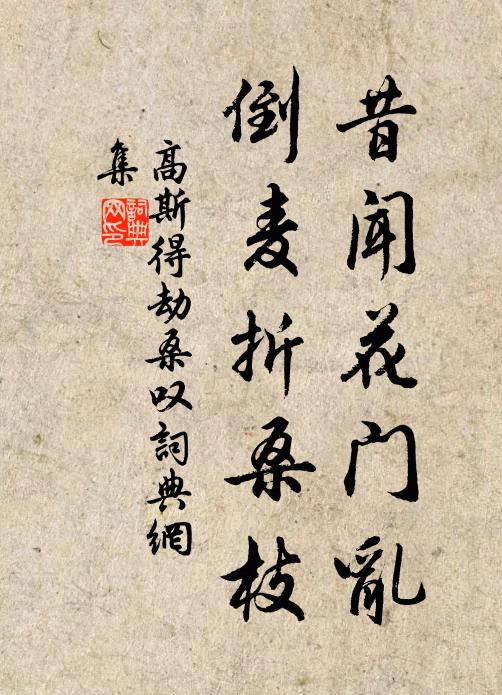 昔闻花门亂
倒麦折桑枝
高斯得劫桑叹詞典網
集
詞典网印